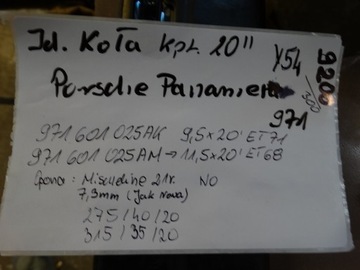 Id. Koła kpl. 20"
Y54
9200
/300
Porsche Panamera
971
971 601 025AK 9,5x20' ET71
971 601 025AM → 11,5x20' ET68
Opona: Michelin 21r. NO
7,3mm (Jak Nowa)
275/40/20
315/35/20